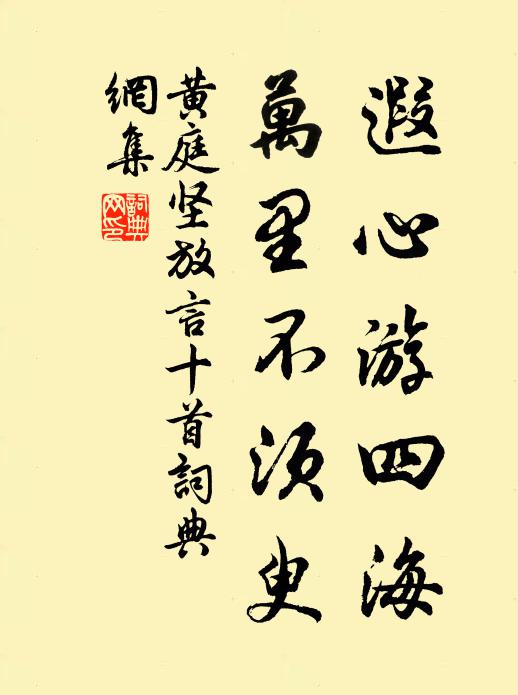 遐心游四海
萬里不須臾
黄庭坚放言十首詞典
網集
詞典
网印